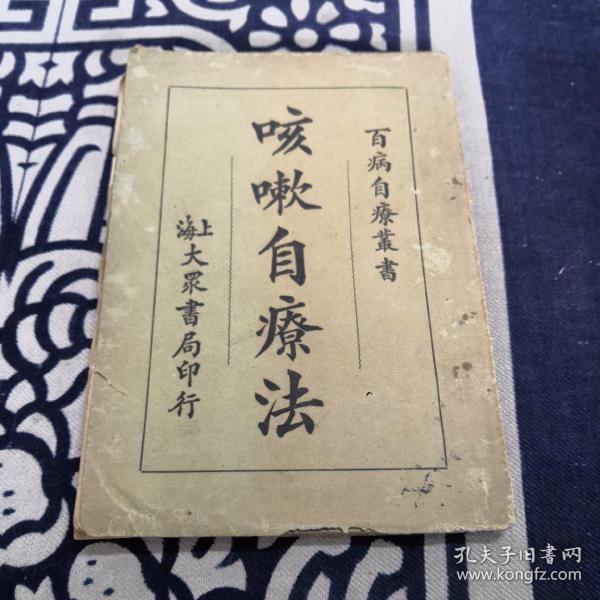 百病自療叢書
咳嗽自療法
上海大眾書局印行
孔夫子旧書网
www.kongfz.com